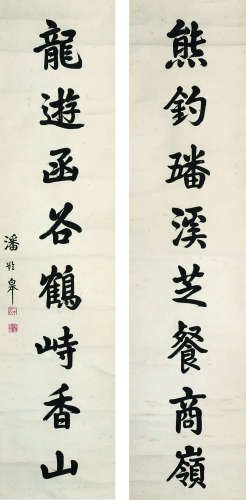 熊釣磻溪芝餐商嶺
龍遊函谷鶴峙香山
潘齡皋